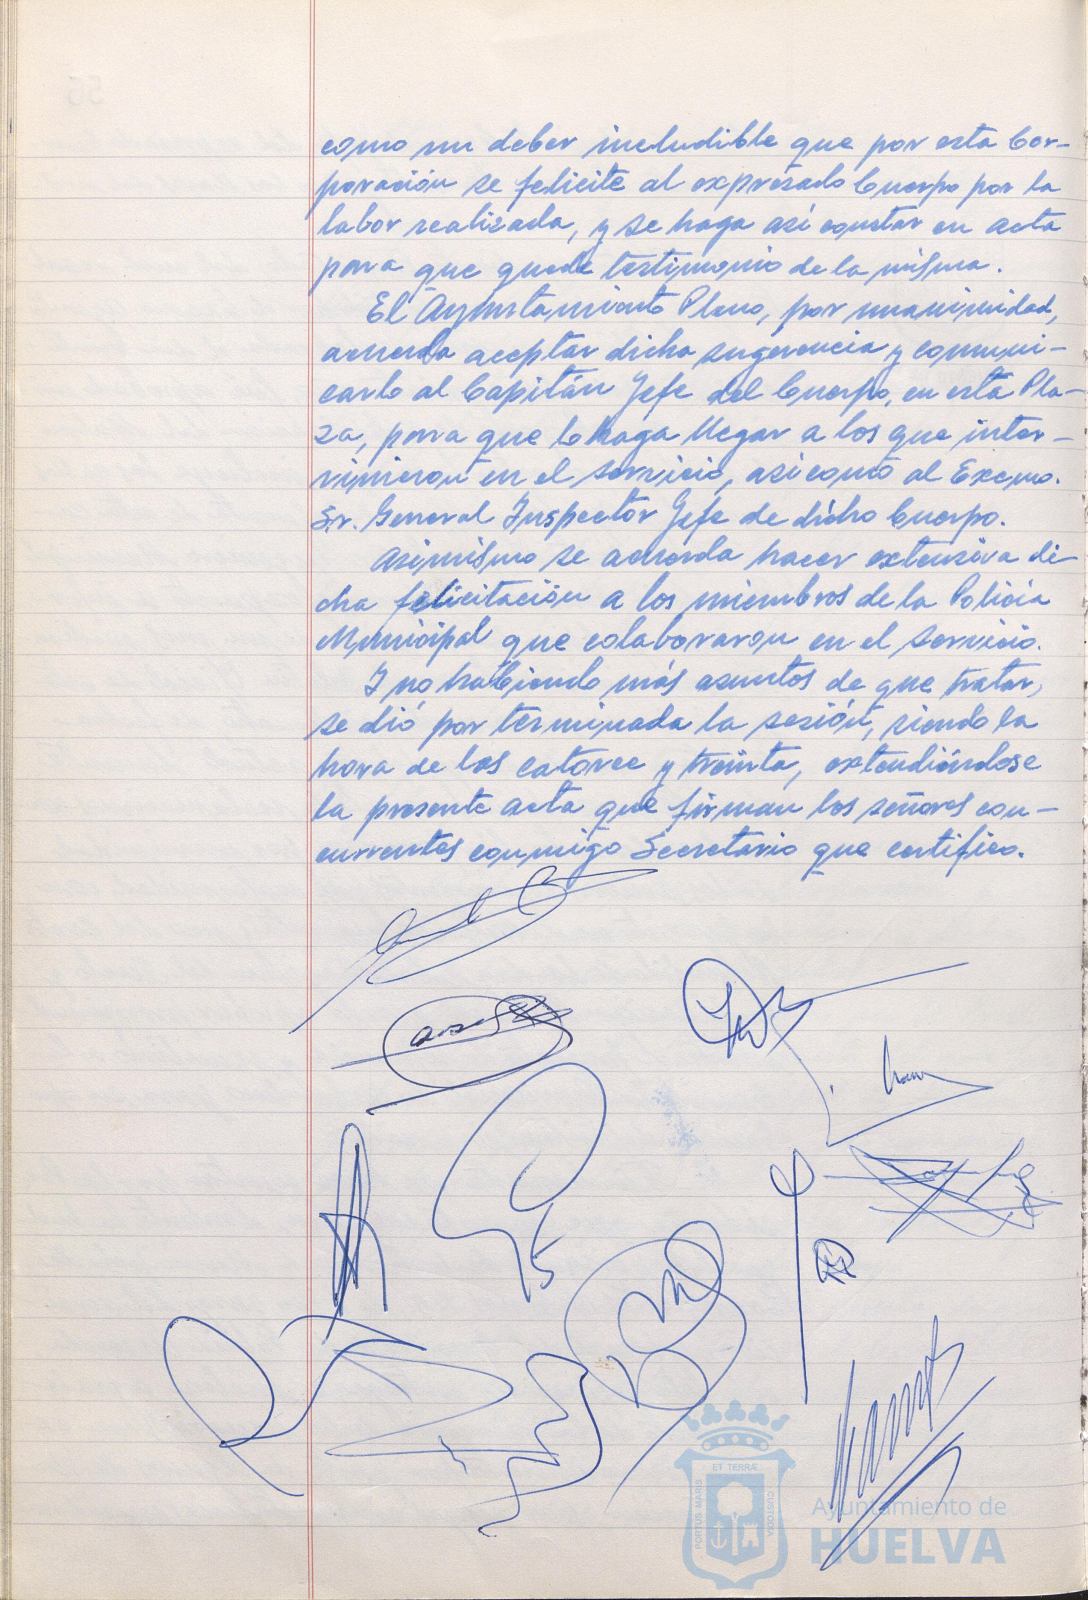 como un deber ineludible que por esta Cor-
poración se felicite al expresado Cuerpo por la
labor realizada, y se haga así constar en acta
para que quede testimonio de la misma.
El Ayuntamiento Pleno, por unanimidad,
acuerda aceptar dicha sugerencia y comuni-
carlo al Capitán Jefe del Cuerpo, en esta Pla-
za, para que lo haga llegar a los que inter-
vinieron en el servicio, así como al Excmo.
Sr. General Inspector Jefe de dicho Cuerpo.
Asimismo se acuerda hacer extensiva di-
cha felicitación a los miembros de la Policía
Municipal que colaboraron en el servicio.
Y no habiendo más asuntos de que tratar,
se dió por terminada la sesión, siendo la
hora de las catorce y treinta, extendiéndose
la presente acta que firman los señores con-
currentes conmigo Secretario que certifico.
PORTUS MARIS ET TERRÆ CUSTODIA
Ayuntamiento de
HUELVA